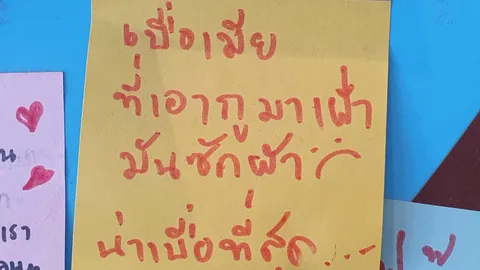 เบื่อเมีย
ที่เอากูมาเฝ้า
มันซักผ้า
น่าเบื่อที่สุด...
เรา